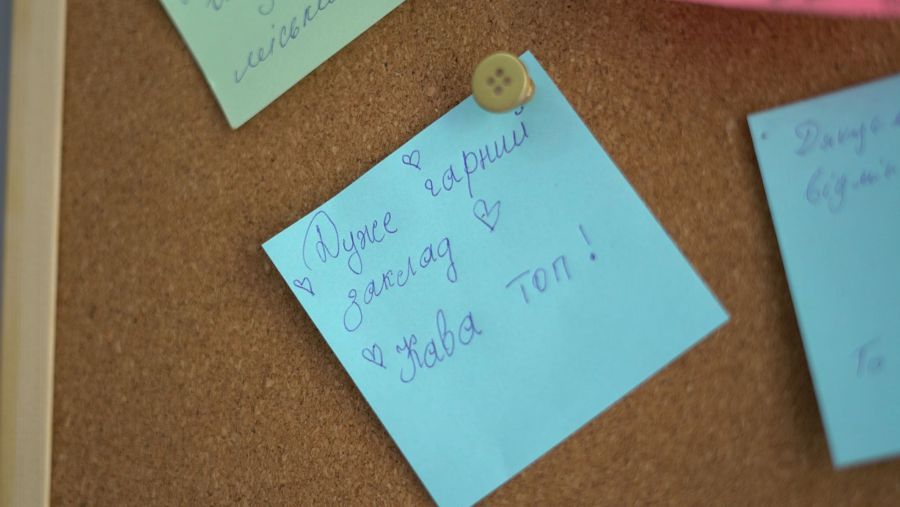 міські
Дуже гарний
заклад
Кава топ!
Дякую
відмін
То